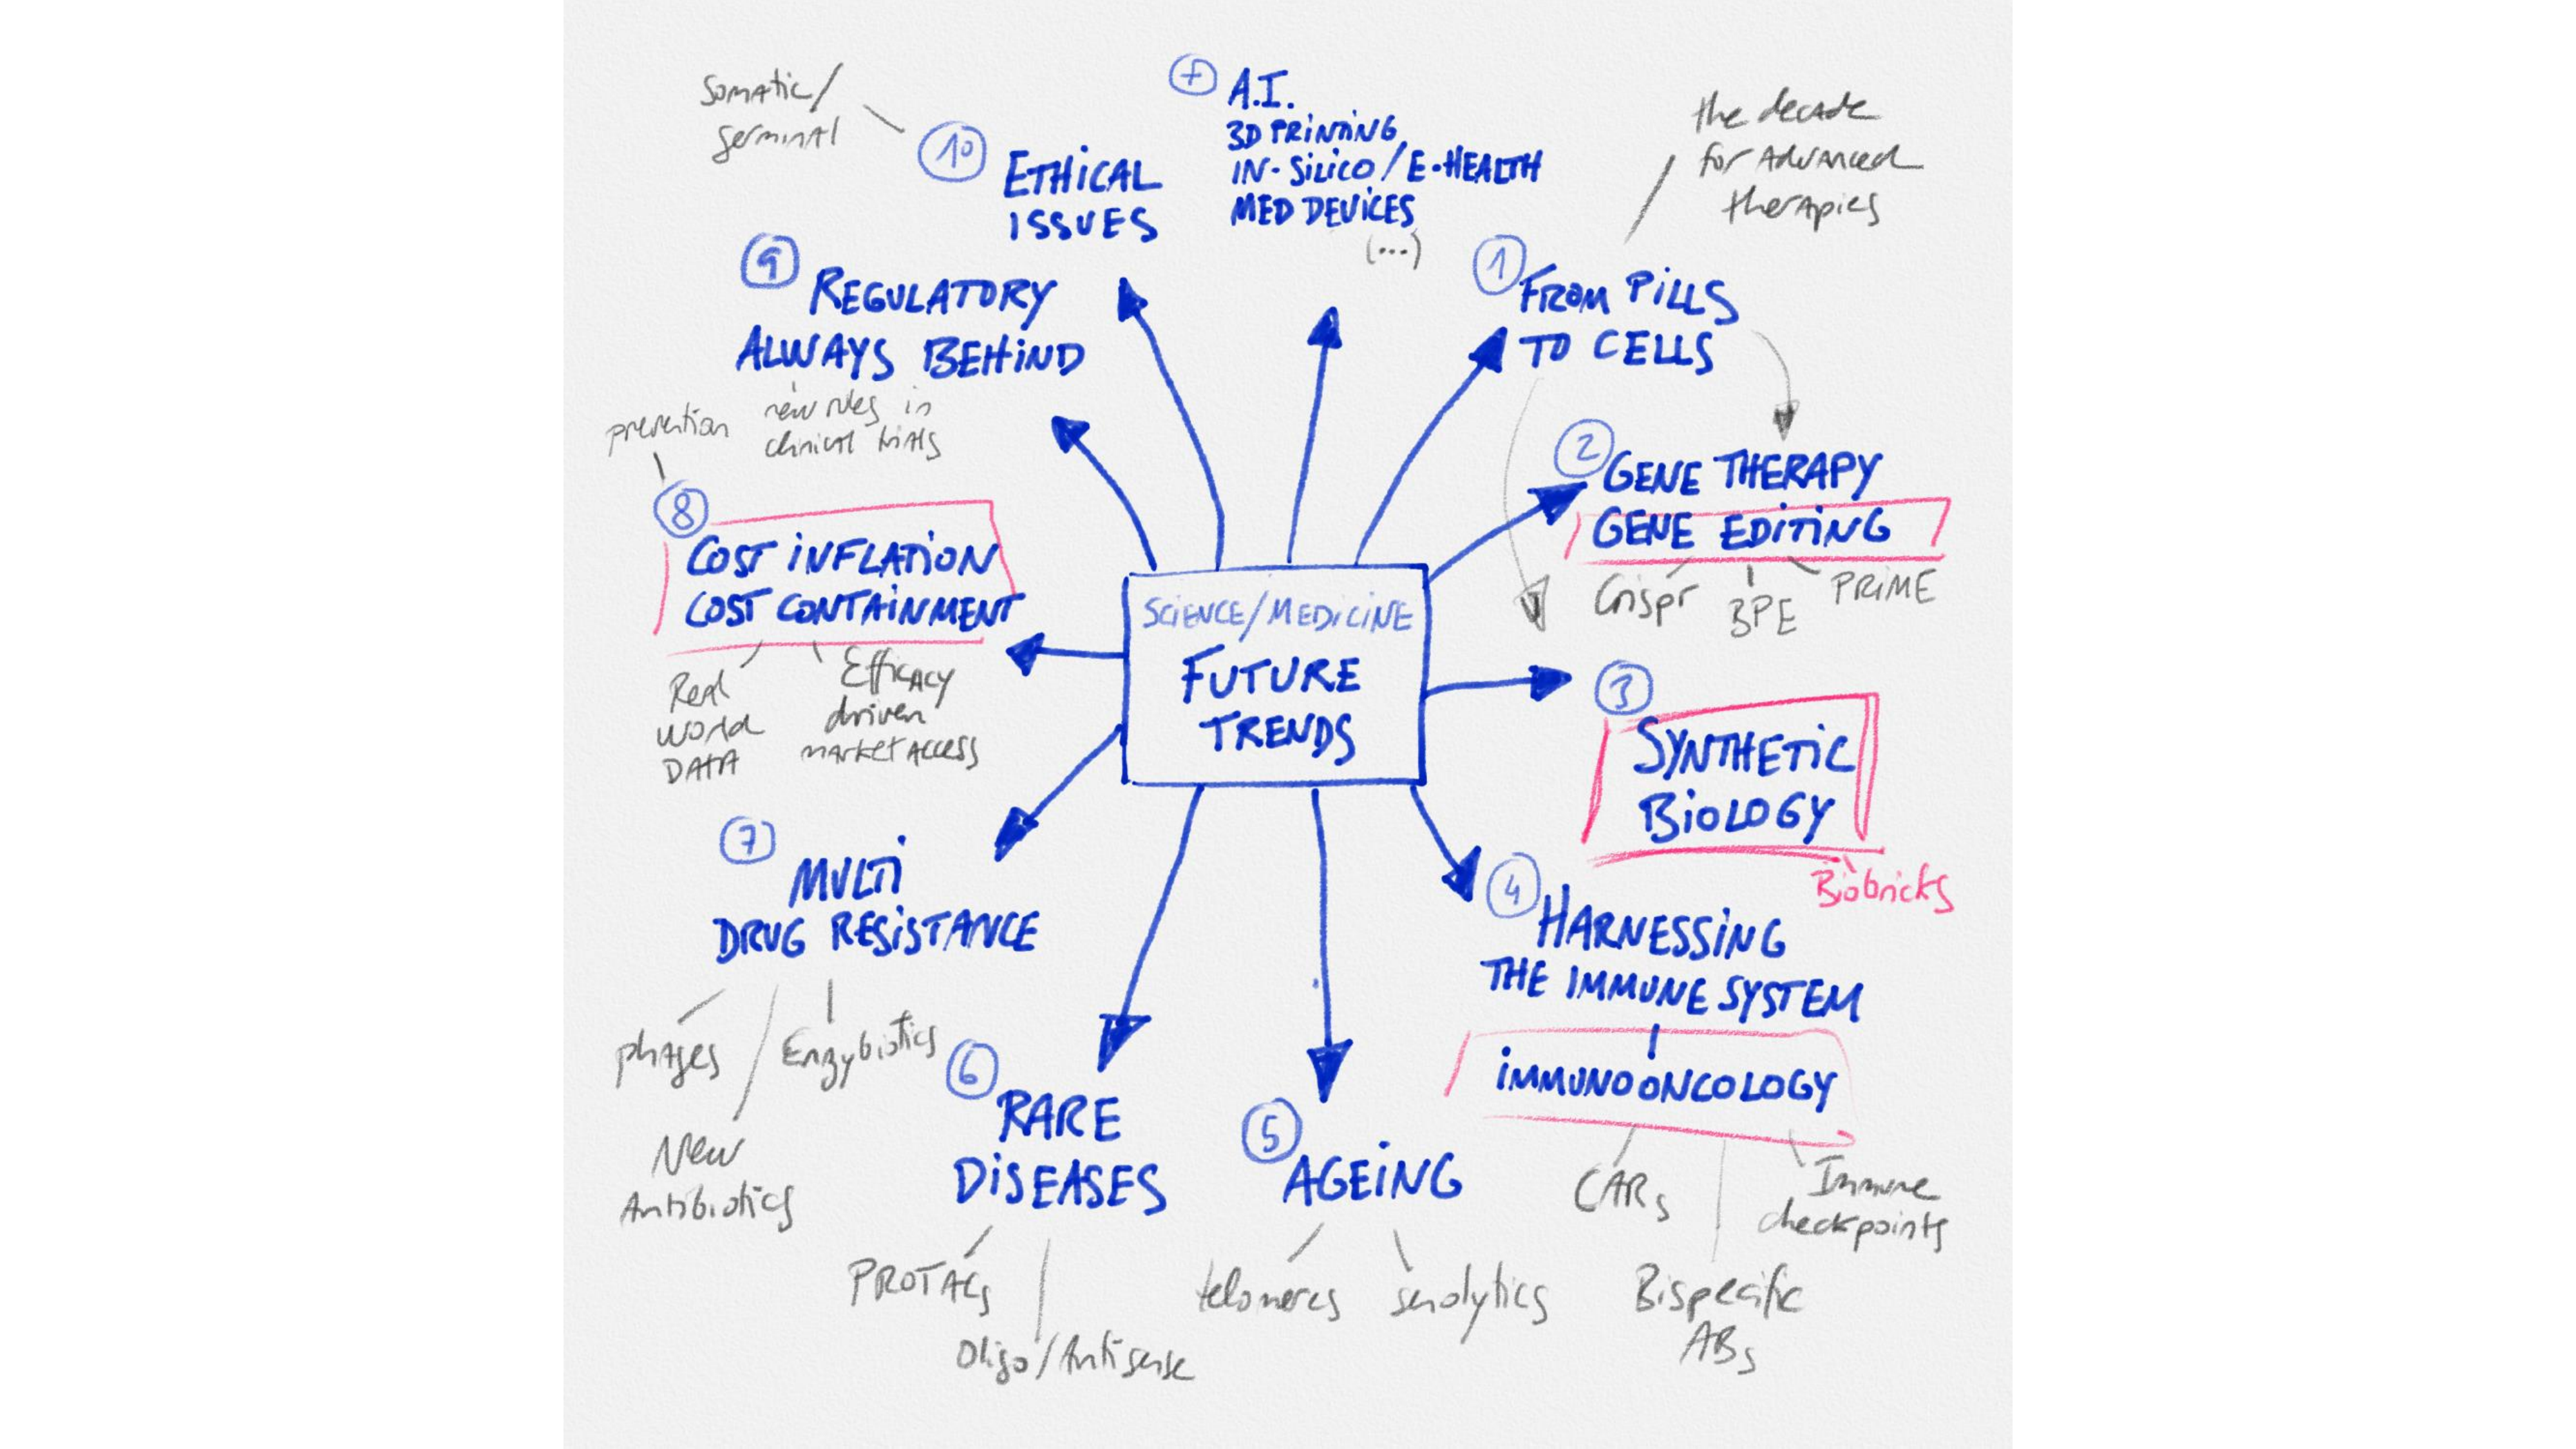 SCIENCE/MEDICINE
FUTURE
TRENDS
+
A.I.
3D PRINTING
IN-SILICO/E-HEALTH
MED DEVICES
(...)
1
FROM PILLS
TO CELLS
the decade
for Advanced
therapies
2
GENE THERAPY
GENE EDITING
Crispr
BPE
PRIME
3
SYNTHETIC
BIOLOGY
Biobricks
4
HARNESSING
THE IMMUNE SYSTEM
IMMUNOONCOLOGY
CARs
Bispecific
ABs
Immune
checkpoints
5
AGEING
telomeres
senolytics
6
RARE
DISEASES
PROTACs
Oligo/Antisense
7
MULTI
DRUG RESISTANCE
phages
Enzybiotics
New
Antibiotics
8
COST INFLATION
COST CONTAINMENT
prevention
Real
World
DATA
Efficacy
driven
market ACCESS
9
REGULATORY
ALWAYS BEHIND
new rules in
clinical trials
10
ETHICAL
ISSUES
Somatic/
germinal